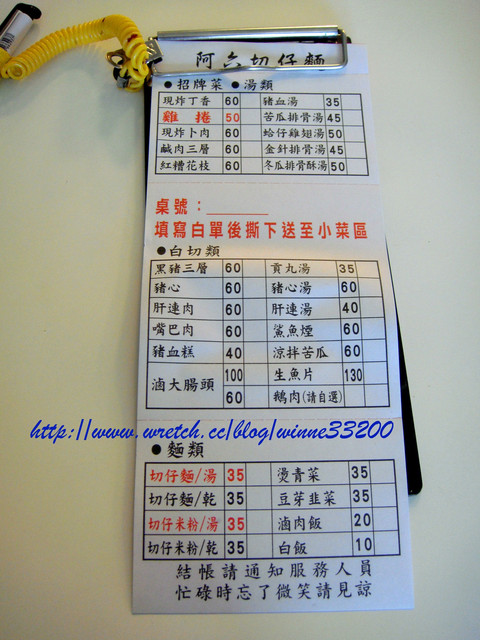 阿六切仔麵
●招牌菜 ●湯類
現炸丁香 60 豬血湯 35
雞捲 50 苦瓜排骨湯 45
現炸卜肉 60 蛤仔雞翅湯 50
鹹肉三層 60 金針排骨湯 45
紅糟花枝 60 冬瓜排骨酥湯 50
桌號：
填寫白單後撕下送至小菜區
●白切類
黑豬三層 60 貢丸湯 35
豬心 60 豬心湯 60
肝連肉 60 肝連湯 40
嘴巴肉 60 鯊魚煙 60
豬血糕 40 涼拌苦瓜 60
滷大腸頭 100 生魚片 130
60 鵝肉(請自選)
http://www.wretch.cc/blog/winne33200
●麵類
切仔麵/湯 35 燙青菜 35
切仔麵/乾 35 豆芽韭菜 35
切仔米粉/湯 35 滷肉飯 20
切仔米粉/乾 35 白飯 10
結帳請通知服務人員
忙碌時忘了微笑請見諒